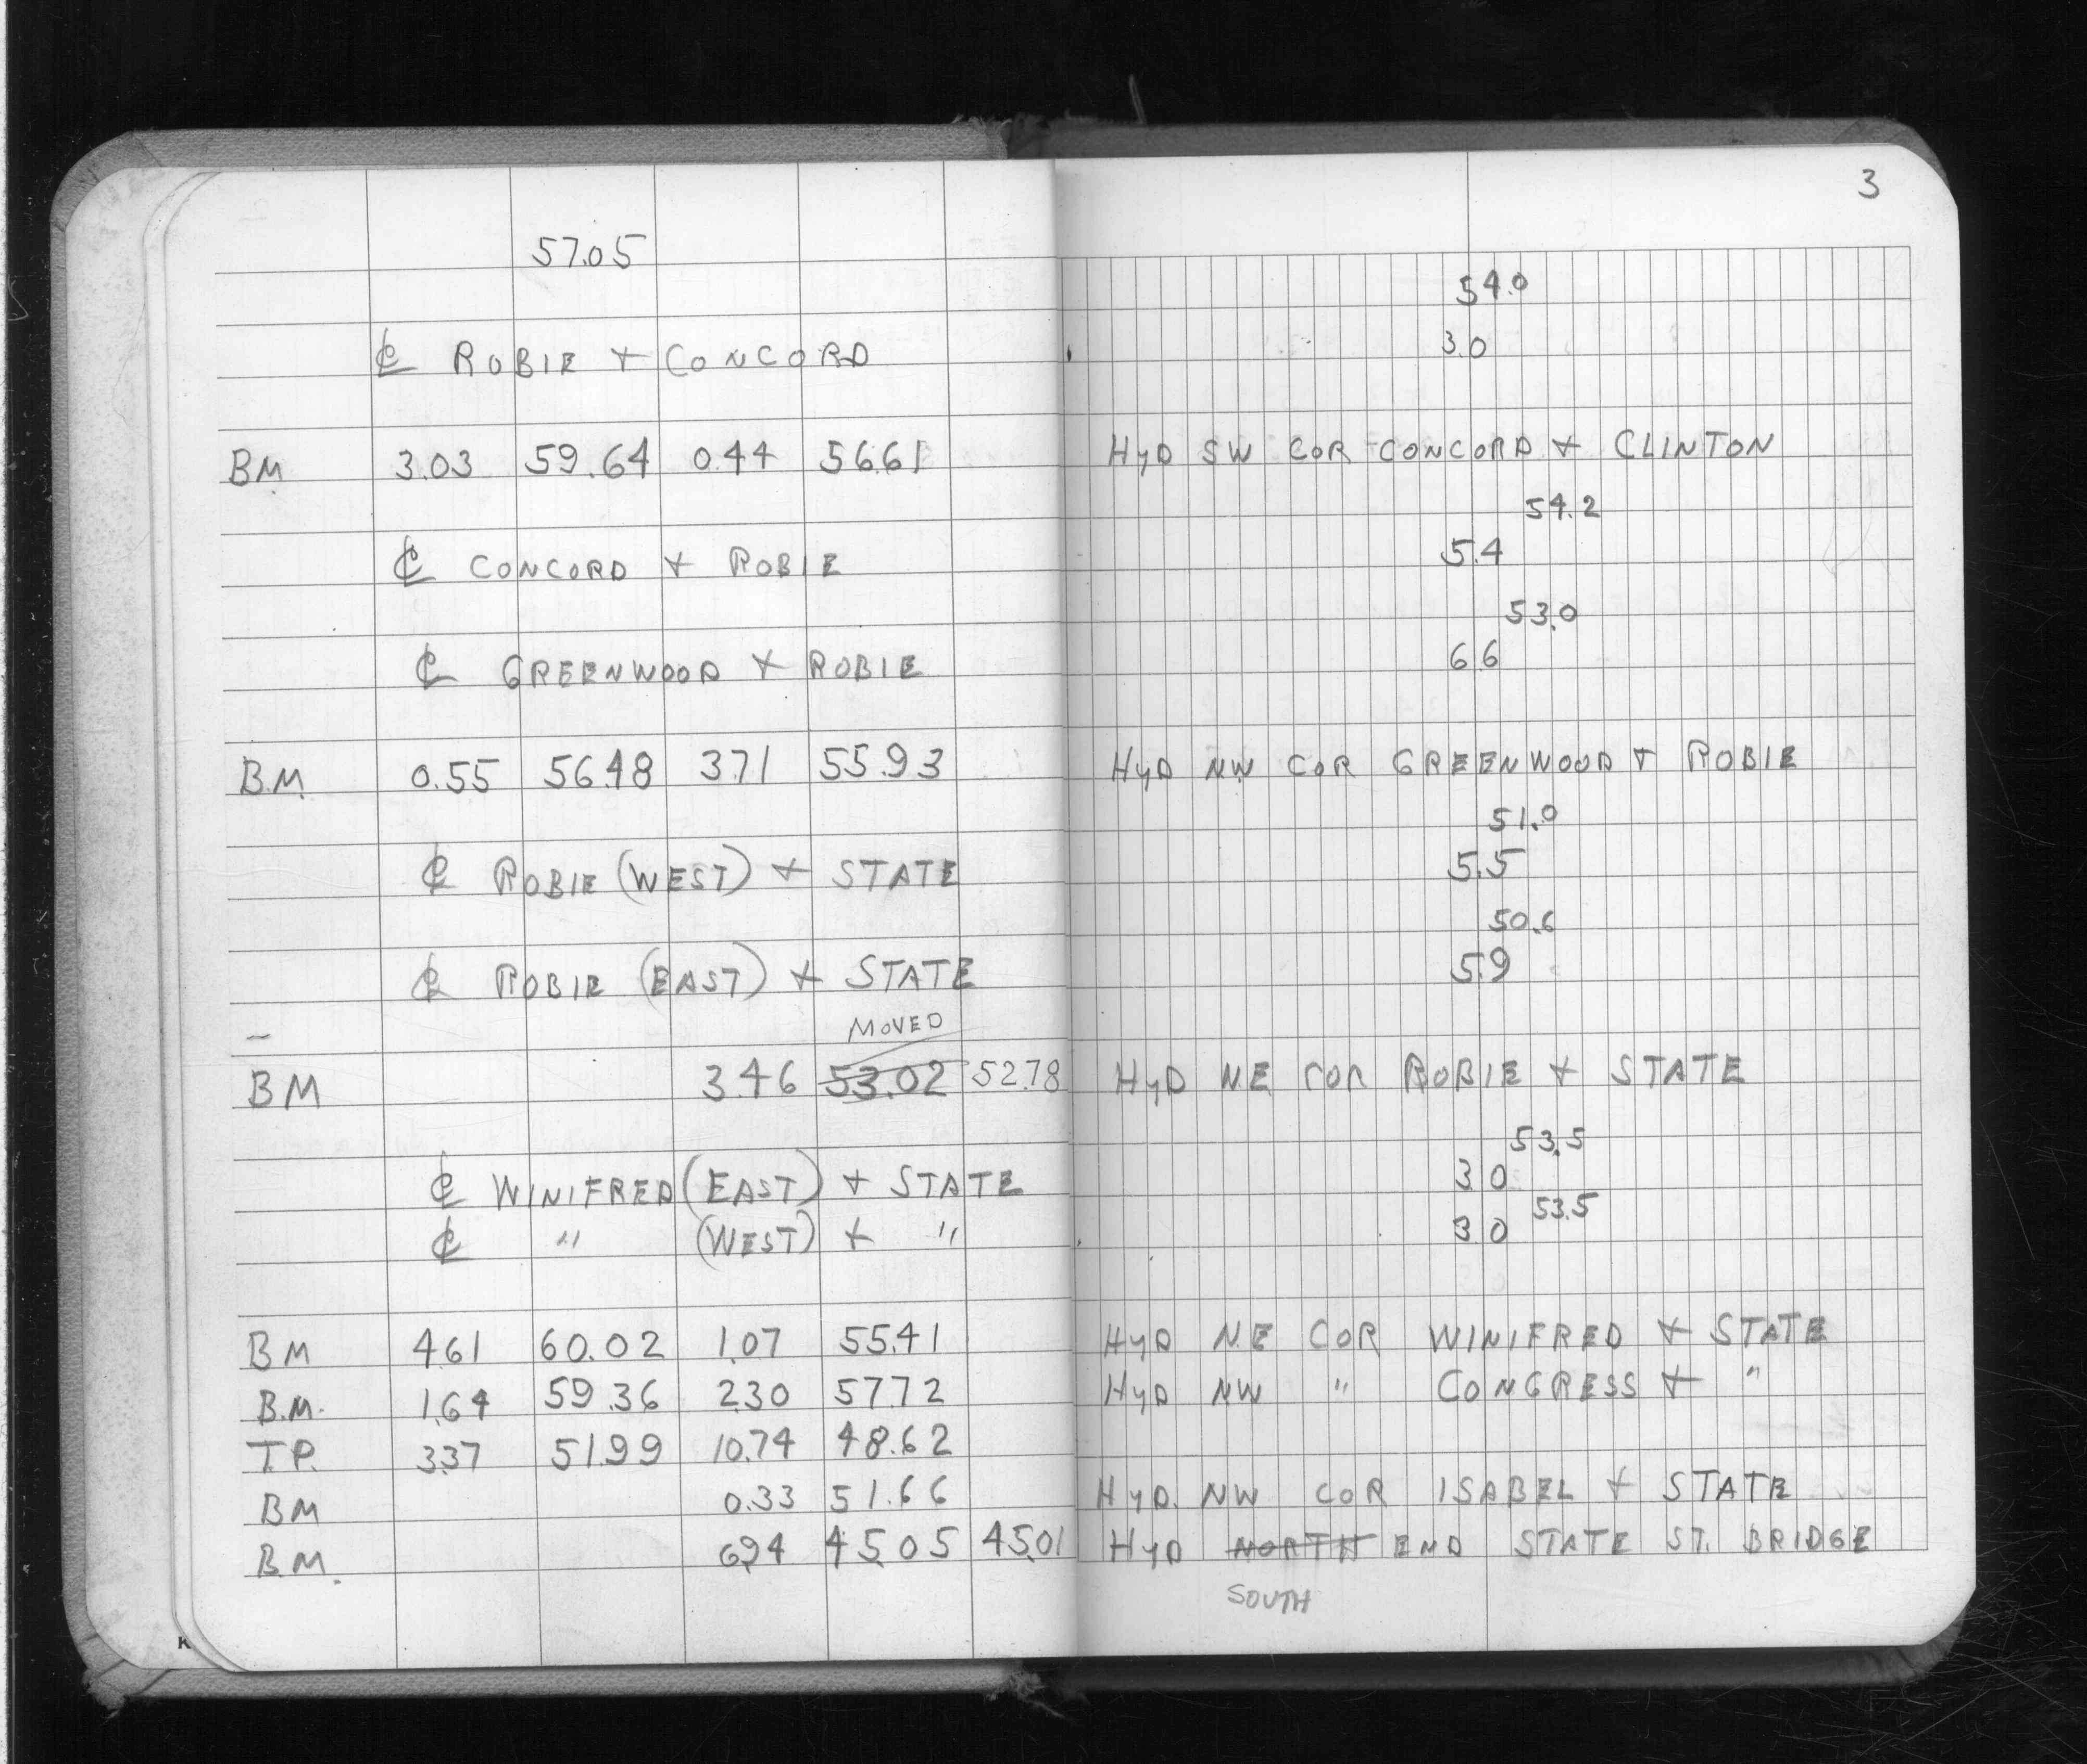 3
57.05
54.0
℄ ROBIE + CONCORD 3.0
BM 3.03 59.64 0.44 56.61 HYD SW COR CONCORD + CLINTON
54.2
℄ CONCORD + ROBIE 5.4
53.0
℄ GREENWOOD + ROBIE 6.6
B.M. 0.55 56.48 3.71 55.93 HYD NW COR GREENWOOD + ROBIE
51.0
℄ ROBIE (WEST) + STATE 5.5
50.6
℄ ROBIE (EAST) + STATE 5.9
MOVED
BM 3.46 53.02 52.78 HYD NE COR ROBIE + STATE
53.5
℄ WINIFRED (EAST) + STATE 3.0
53.5
℄ " (WEST) + " 3.0
BM 4.61 60.02 1.07 55.41 HYD N.E COR WINIFRED + STATE
B.M. 1.64 59.36 2.30 57.72 HYD NW " CONGRESS + "
T.P. 3.37 51.99 10.74 48.62
BM 0.33 51.66 HYD. NW COR ISABEL + STATE
B.M. 6.94 45.05 45.01 HYD NORTH END STATE ST. BRIDGE
SOUTH
K